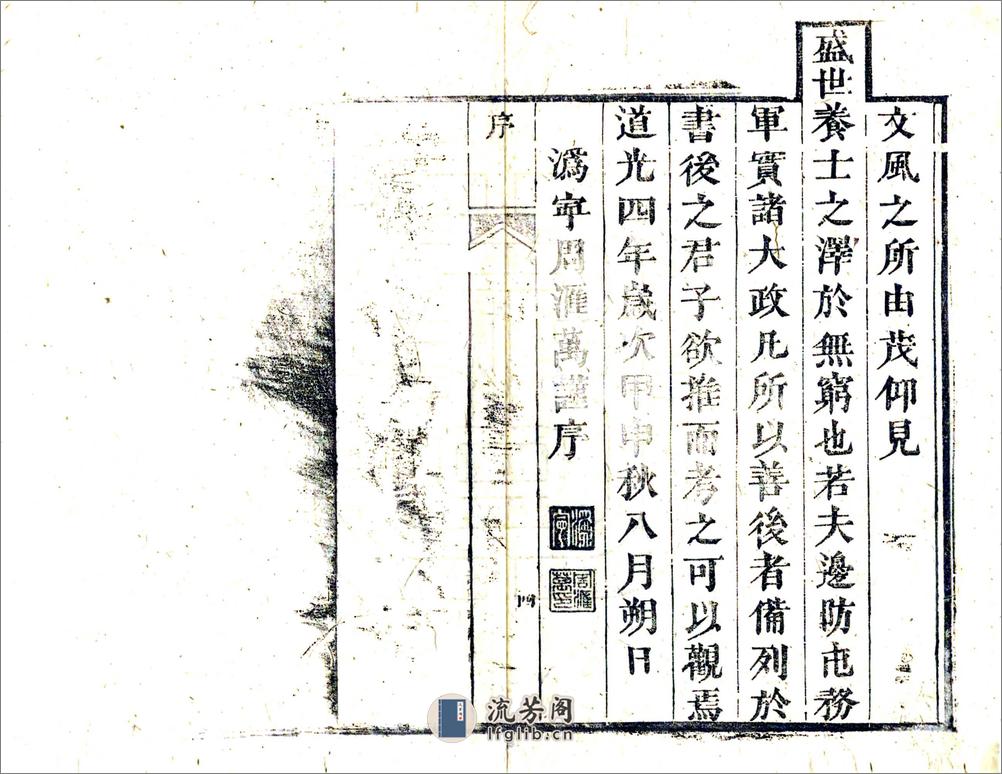 文風之所由茂仰見
盛世養士之澤於無窮也若夫邊防屯務
軍實諸大政凡所以善後者備列於
書後之君子欲推而考之可以觀焉
道光四年歲次甲申秋八月朔日
溈寧周滙萬謹序
溈寧
周滙萬印
序
四
流芳阁
lfglib.cn